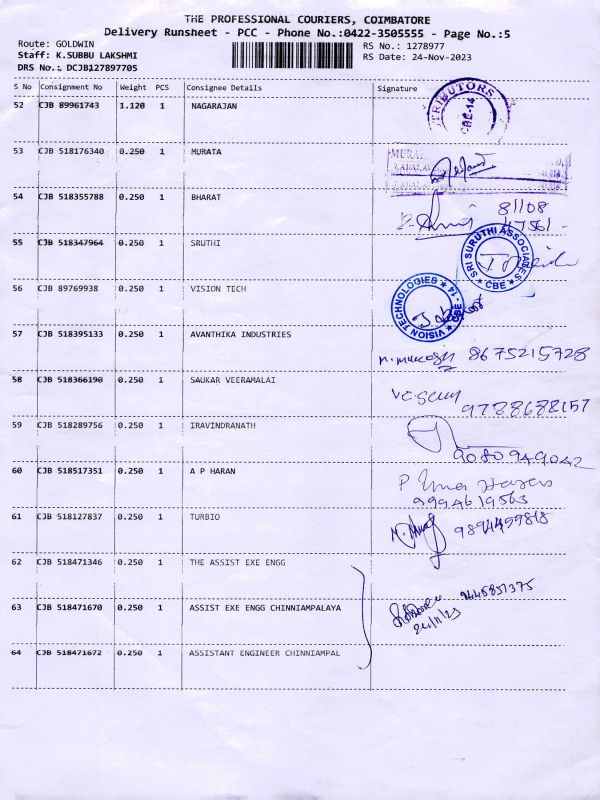 THE PROFESSIONAL COURIERS, COIMBATORE
Delivery Runsheet - PCC - Phone No.:0422-3505555 - Page No.:5
Route: GOLDWIN RS No.: 1278977
Staff: K.SUBBU LAKSHMI RS Date: 24-Nov-2023
DRS No.: DCJB127897705
S No Consignment No Weight PCS Consignee Details Signature
52 CJB 89961743 1.120 1 NAGARAJAN TRIBUTORS CBE-14
53 CJB 518176340 0.250 1 MURATA
54 CJB 518355788 0.250 1 BHARAT 81108
47561-
55 CJB 518347964 0.250 1 SRUTHI SRI SURUTHI ASSOCIATES CBE
56 CJB 89769938 0.250 1 VISION TECH VISION TECHNOLOGIES CBE-14
57 CJB 518395133 0.250 1 AVANTHIKA INDUSTRIES
8675215728
58 CJB 518366190 0.250 1 SAUKAR VEERAMALAI
9788688157
59 CJB 518289756 0.250 1 IRAVINDRANATH
9080949042
60 CJB 518517351 0.250 1 A P HARAN P Uma Haran
9994619563
61 CJB 518127837 0.250 1 TURBIO 9894459818
62 CJB 518471346 0.250 1 THE ASSIST EXE ENGG
63 CJB 518471670 0.250 1 ASSIST EXE ENGG CHINNIAMPALAYA 9445851375
24/11/23
64 CJB 518471672 0.250 1 ASSISTANT ENGINEER CHINNIAMPAL